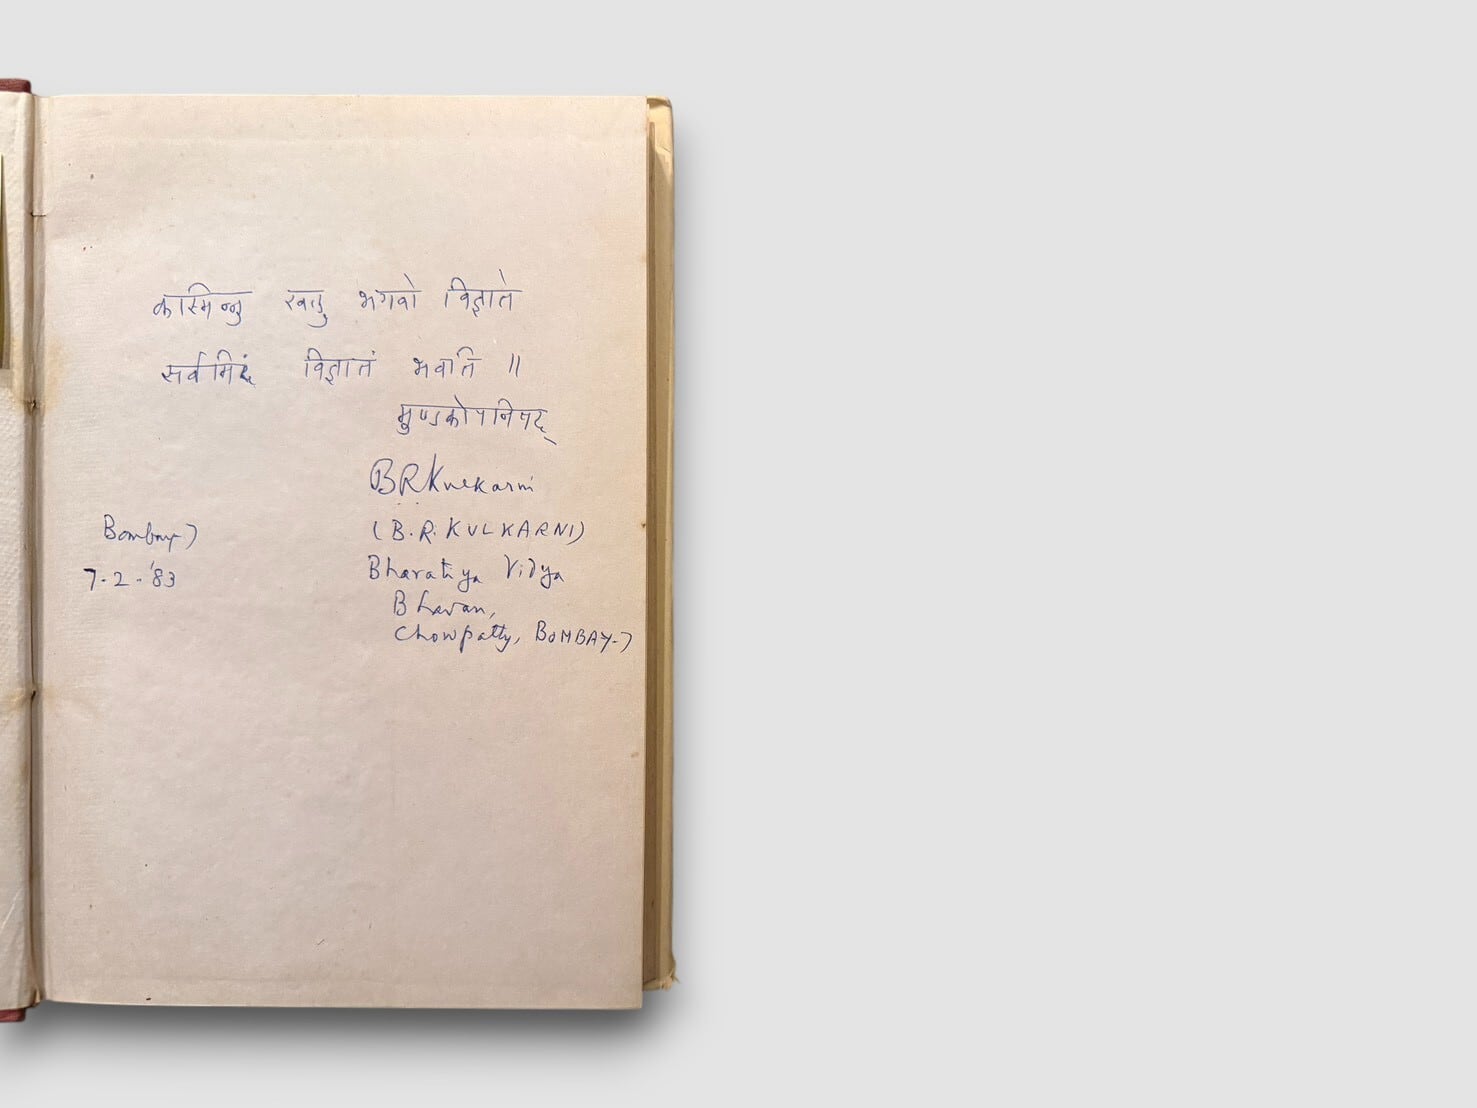 कस्मिन्नु खलु भगवो विज्ञाते
सर्वमिदं विज्ञातं भवति ॥
मुण्डकोपनिषद्
BRKulkarni
Bombay-7 (B.R. KULKARNI)
7-2-'83 Bharatiya Vidya
Bhavan,
Chowpatty, BOMBAY-7